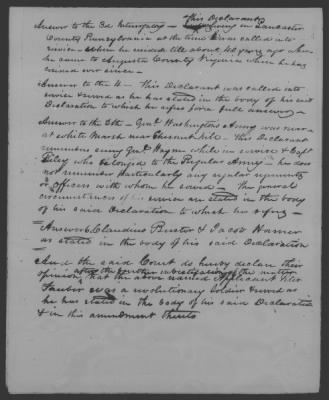 Answer to the 3d Interrogatory — This Declarant
living in Lancaster
County Pennsylvania at the time he was called into
service — where he resided till about 40 years ago when
he came to Augusta County Virginia where he has
resided ever since —
Answer to the 4 — This Declarant was called into
service & served as he has stated in the body of his said
Declaration to which he refers for a full answer —
Answer to the 5th — Genl Washington's Army was near
at White Marsh near Chesnut hill — This declarant
remembers seeing Genl Wayne while in service & Capt
who belonged to the Regular Army — he does
not remember particularly any regular regiments
or officers with whom he served — The general
circumstances of his service are stated in the body
of his said Declaration to which he refers —
Answer 6 Claudius Buster & Jacob Hanner
as stated in the body of his said Declaration
And the said Court do hereby declare their
opinion after the further investigation of the matter
that the above named Applicant Peter
was a revolutionary soldier & served as
he has stated in the body of his said Declaration
& in this amendment thereto